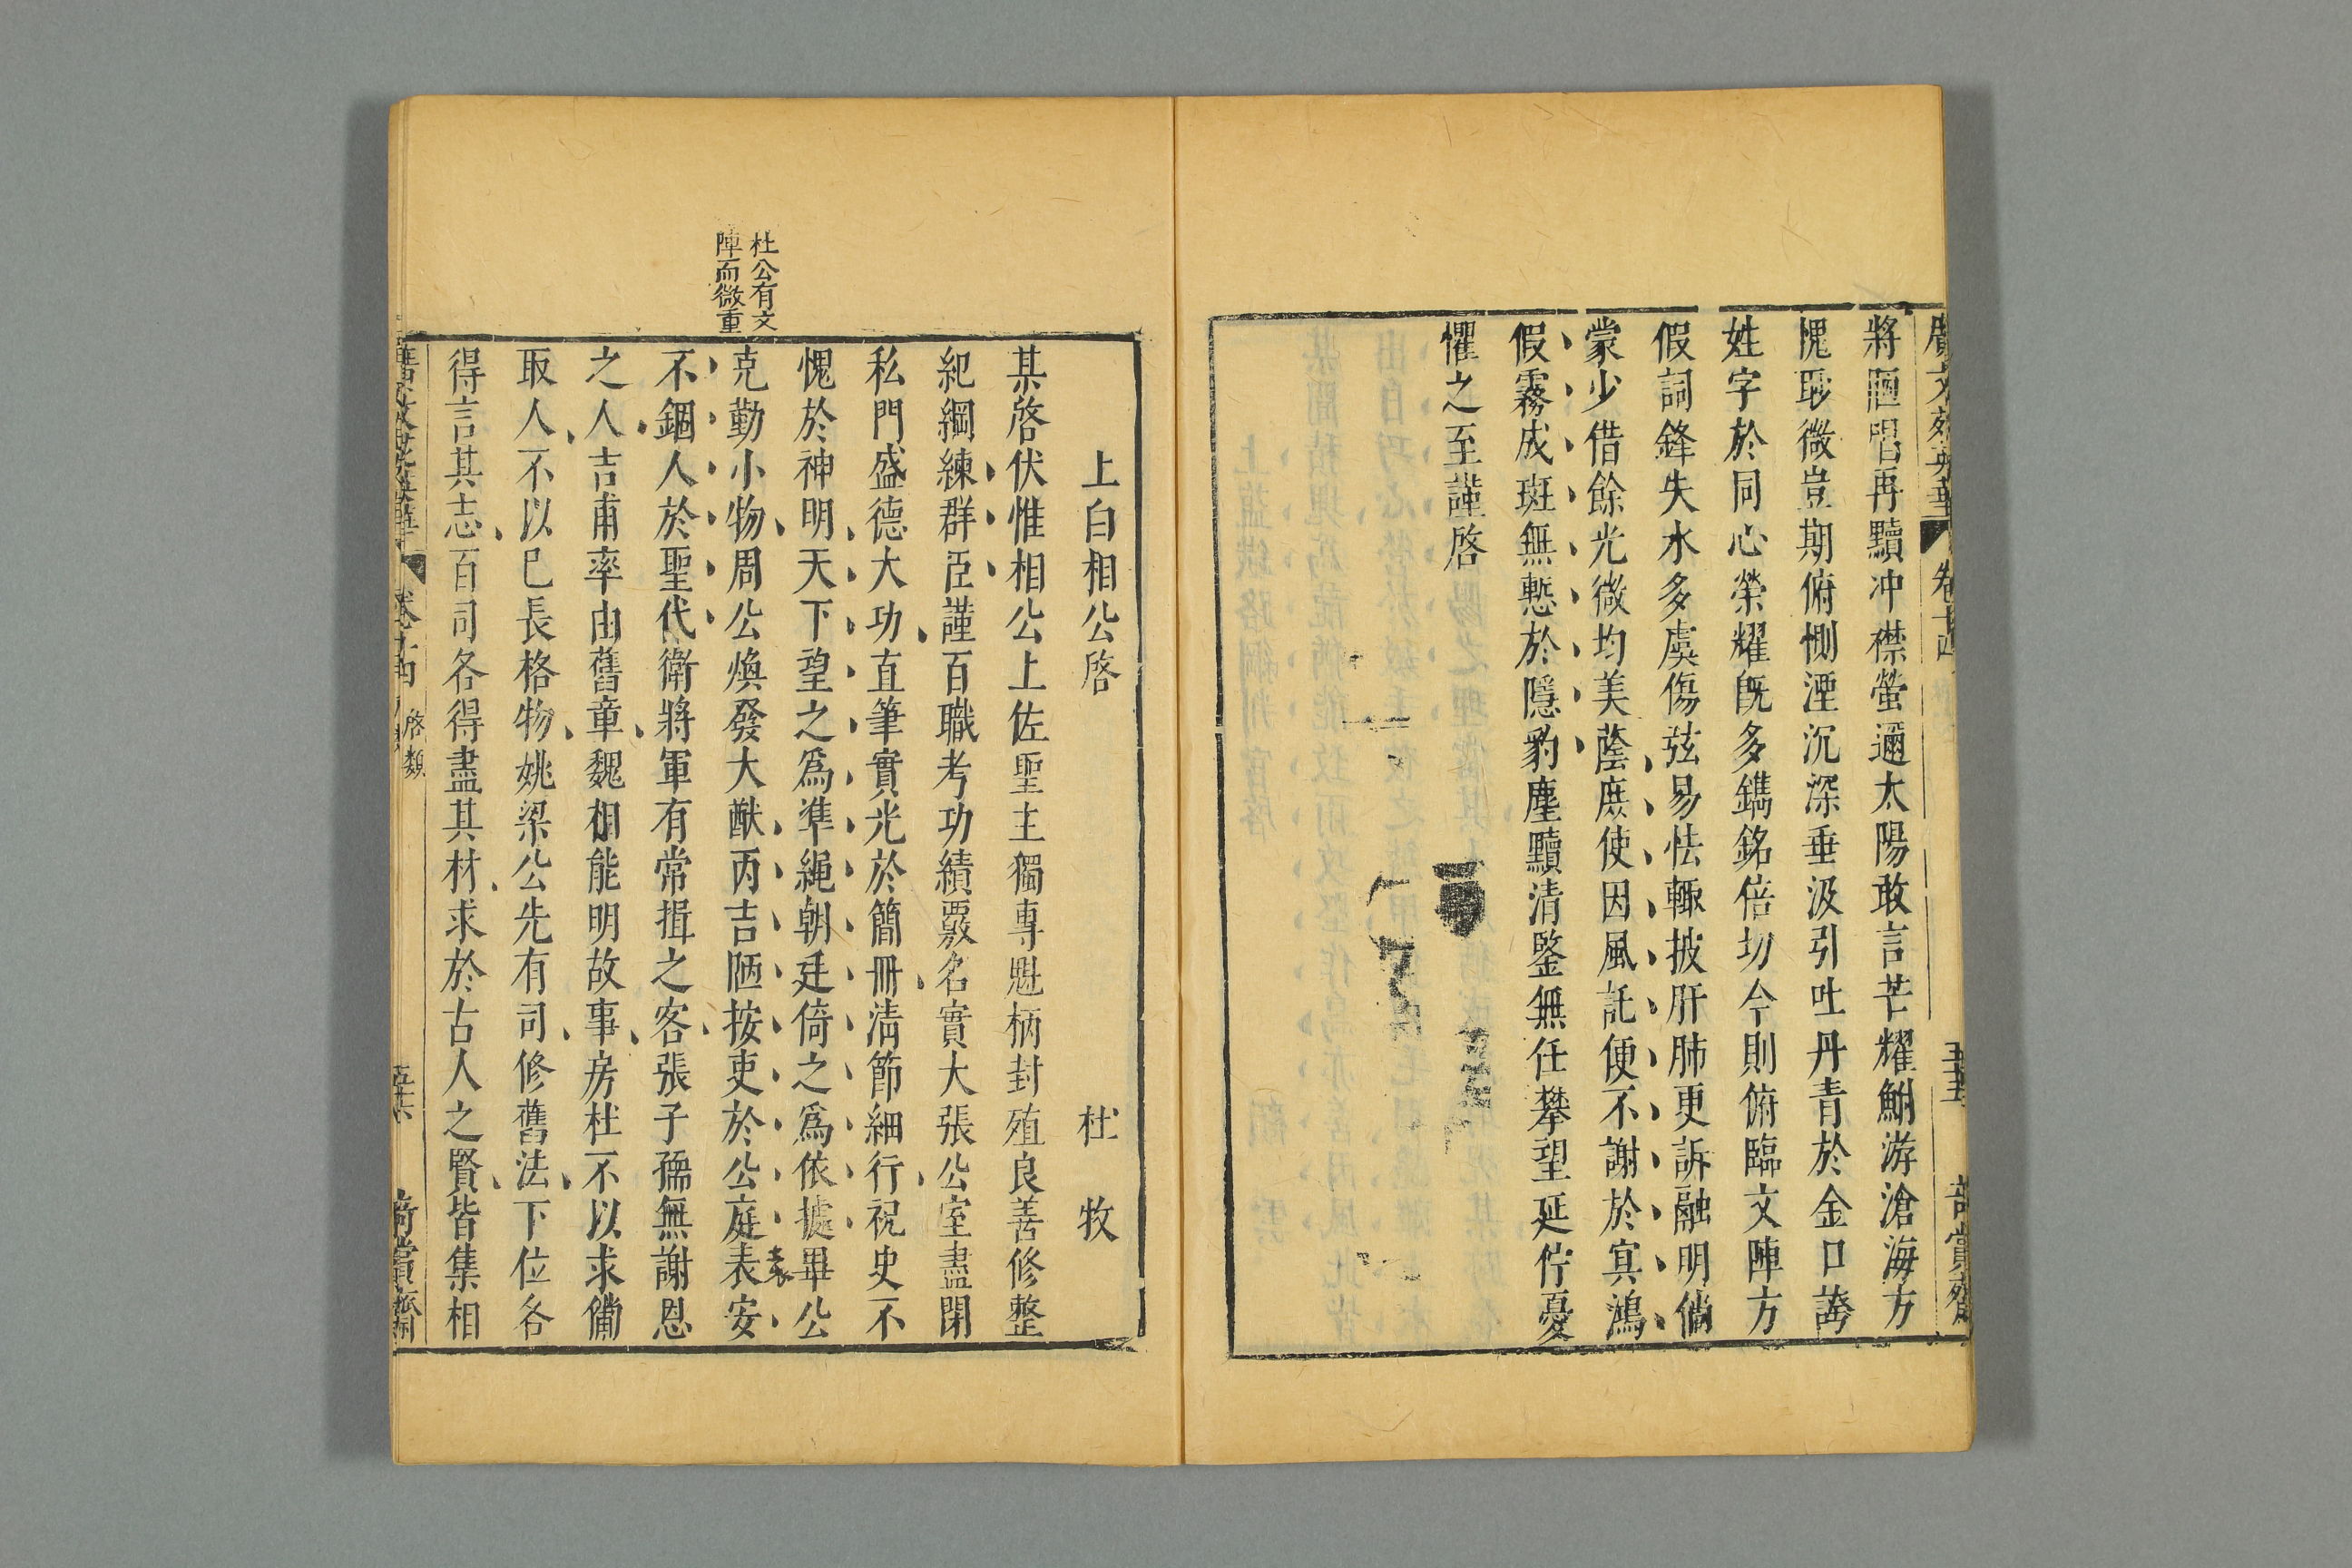 將迴唱再黷冲襟螢邇太陽敢言芒耀鮒游滄海方
愧聆微豈期俯惻湮沉深垂汲引吐丹青於金口謗
姓字於同心榮耀旣多鐫銘倍切今則俯臨文陣方
假詞鋒失水多虞傷弦易怯輙披肝肺更訴融明倘
蒙少借餘光微均美蔭庶使因風託便不謝於冥鴻
假霧成斑無慙於隱豹塵黷清鑒無任攀望延佇憂
懼之至謹啓
上白相公啓 杜牧
某啓伏惟相公上佐聖主獨專魁柄封殖良善修整
紀綱練群臣謹百職考功績覈名實大張公室盡閉
私門盛德大功直筆實光於簡冊清節細行祝史不
愧於神明天下望之爲準繩朝廷倚之爲依據畢公
克勤小物周公煥發大猷丙吉陋按吏於公庭表安
袁
不錮人於聖代衛將軍有常揖之客張子孺無謝恩
之人吉甫率由舊章魏相能明故事房杜不以求備
取人不以已長格物姚梁公先有司修舊法下位各
得言其志百司各得盡其材求於古人之賢皆集相
杜公有文
陣而微重
卷十四
啓類